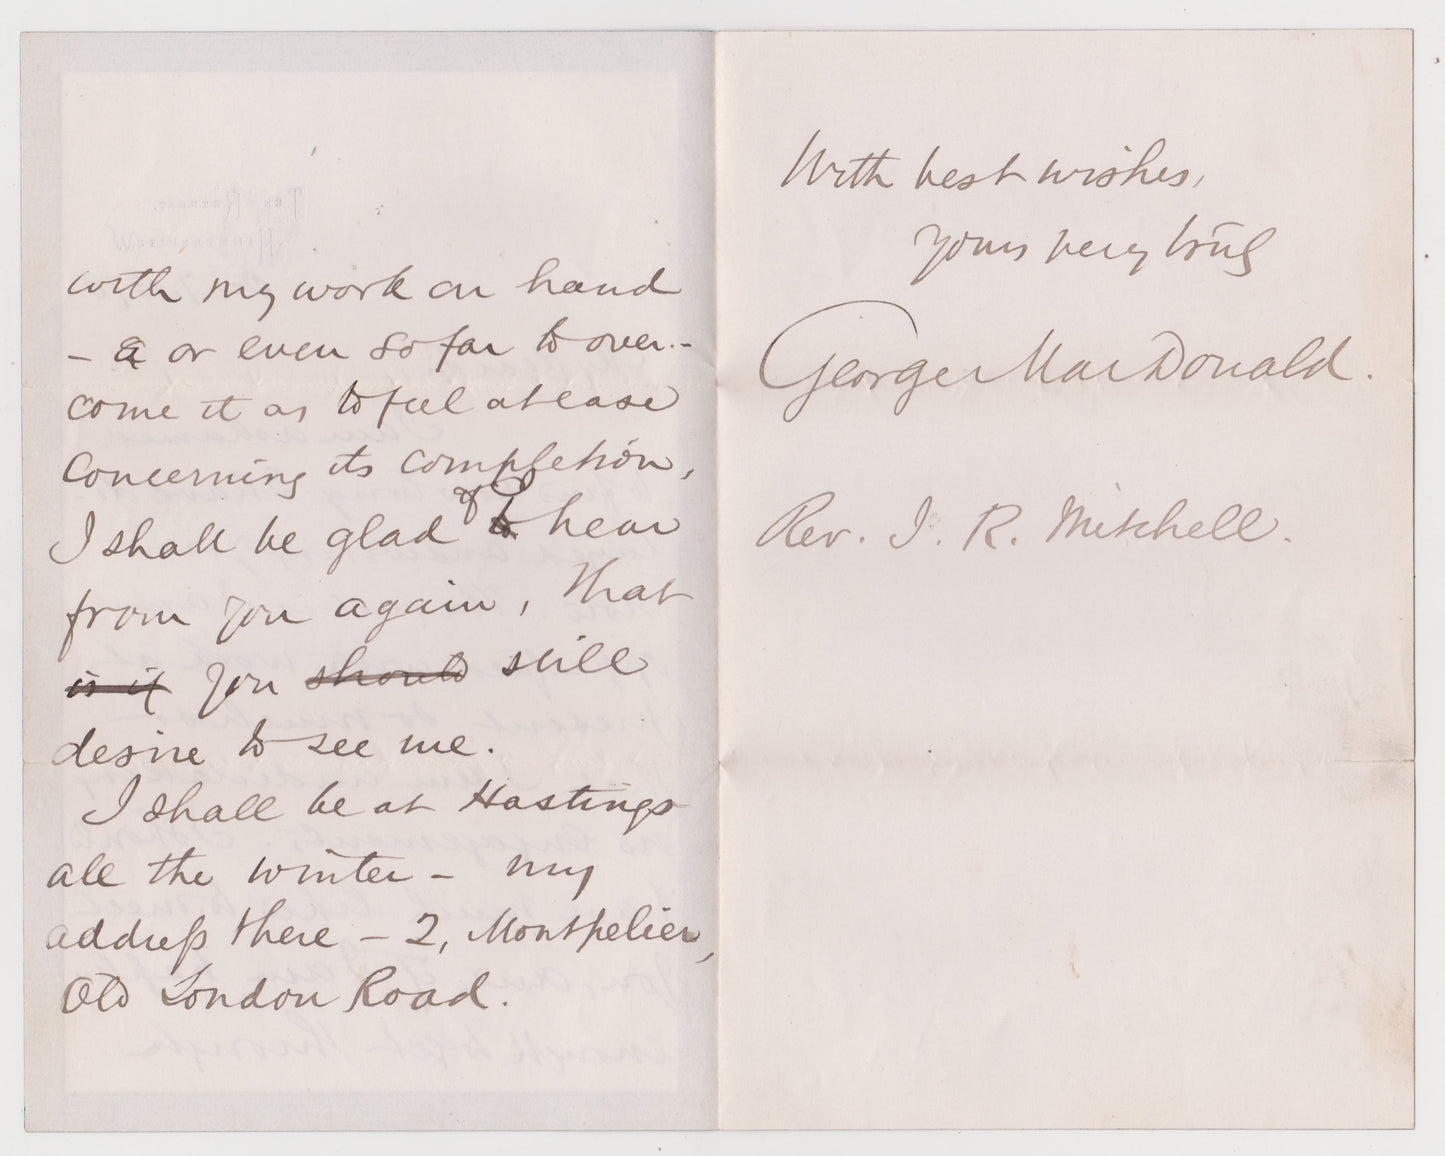 with my work on hand
- a or even so far to over-
come it as to feel at ease
concerning its completion,
I shall be glad of to hear
from you again, that
is if you should still
desire to see me.
I shall be at Hastings
all the winter - my
address there - 2, Montpelier,
Old London Road.
With best wishes,
yours very truly
George MacDonald.
Rev. J. R. Mitchell.